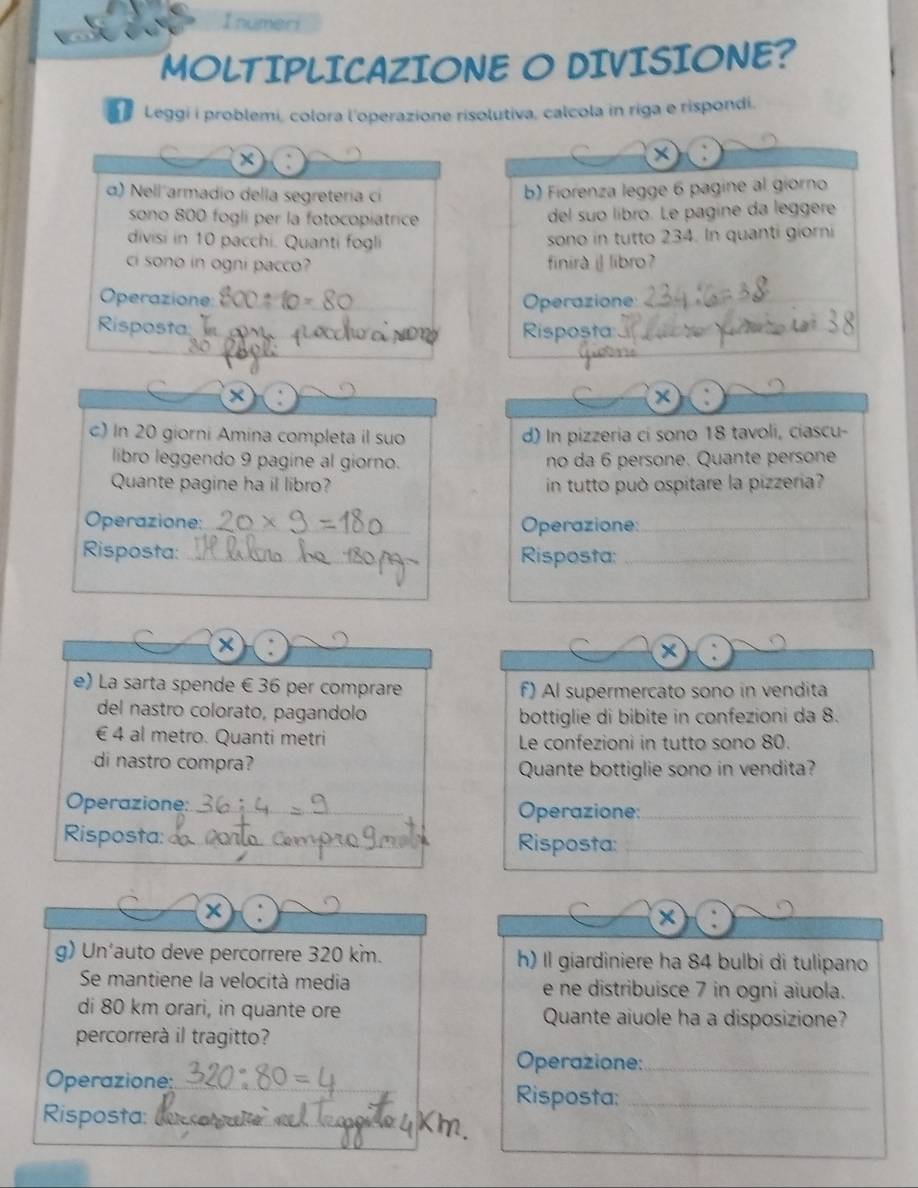 I numeri
MOLTIPLICAZIONE O DIVISIONE?
1 Leggi i problemi, colora l'operazione risolutiva, calcola in riga e rispondi.
× :
a) Nell'armadio della segreteria ci
sono 800 fogli per la fotocopiatrice
divisi in 10 pacchi. Quanti fogli
ci sono in ogni pacco?
Operazione: 800 : 10 = 80
Risposta: In ogni pacco ci sono
80 fogli
× :
b) Fiorenza legge 6 pagine al giorno
del suo libro. Le pagine da leggere
sono in tutto 234. In quanti giorni
finirà il libro?
Operazione: 234 : 6 = 38
Risposta: Il libro in 38
giorni
× :
c) In 20 giorni Amina completa il suo
libro leggendo 9 pagine al giorno.
Quante pagine ha il libro?
Operazione: 20 × 9 = 180
Risposta: Il libro ha 180 pg
× :
d) In pizzeria ci sono 18 tavoli, ciascu-
no da 6 persone. Quante persone
in tutto può ospitare la pizzeria?
Operazione:
Risposta:
× :
e) La sarta spende € 36 per comprare
del nastro colorato, pagandolo
€ 4 al metro. Quanti metri
di nastro compra?
Operazione: 36 : 4 = 9
Risposta: la sarta compra 9
× :
f) Al supermercato sono in vendita
bottiglie di bibite in confezioni da 8.
Le confezioni in tutto sono 80.
Quante bottiglie sono in vendita?
Operazione:
Risposta:
× :
g) Un'auto deve percorrere 320 km.
Se mantiene la velocità media
di 80 km orari, in quante ore
percorrerà il tragitto?
Operazione: 320 : 80 = 4
Risposta: 4 Km.
× :
h) Il giardiniere ha 84 bulbi di tulipano
e ne distribuisce 7 in ogni aiuola.
Quante aiuole ha a disposizione?
Operazione:
Risposta: